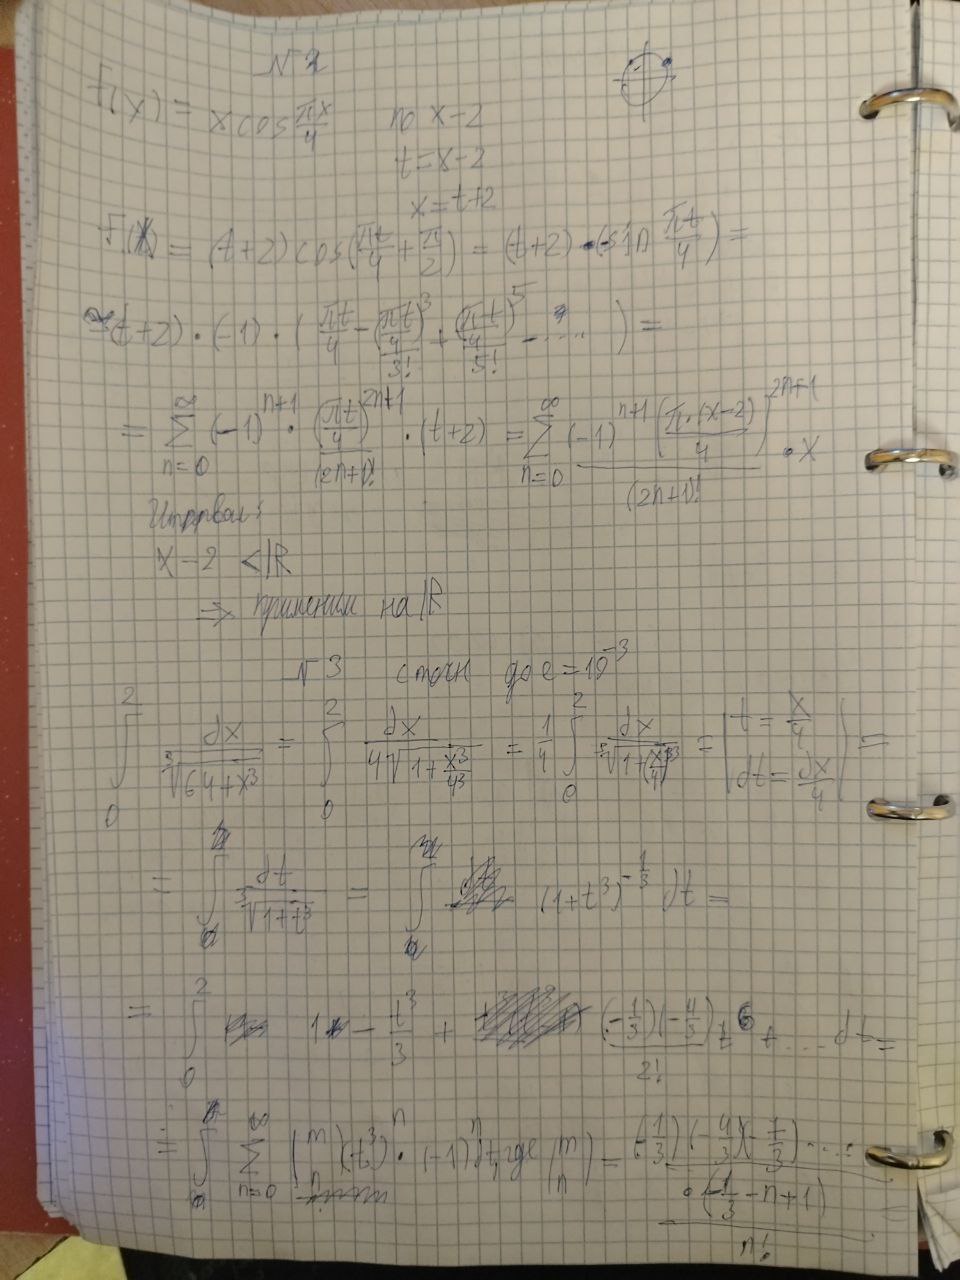 N 2
f(x) = x cos πx/4 по x-2
t = x-2
x = t+2
F(x) = (t+2) cos(πt/4 + π/2) = (t+2) · (-sin πt/4) =
= (t+2) · (-1) · (πt/4 - (πt/4)^3/3! + (πt/4)^5/5! - ....) =
= ∑_{n=0}^{∞} (-1)^{n+1} · (πt/4)^{2n+1}/(2n+1)! · (t+2) = ∑_{n=0}^{∞} (-1)^{n+1} (π·(x-2)/4)^{2n+1}/(2n+1)! · x
x-2 < ℝ
⇒ применим на ℝ
N 3 с точн до e = 10^{-3}
∫_0^2 dx/∛(64+x^3) = ∫_0^2 dx/(4∛(1+x^3/4^3)) = 1/4 ∫_0^2 dx/∛(1+(x/4)^3) = | t = x/4 dt = dx/4 | =
= ∫ dt/∛(1+t^3) = ∫ (1+t^3)^{-1/3} dt =
= ∫_0^2 1 - t^3/3 + (-1/3)(-4/3)/2! t^6 + .... dt =
= ∫ ∑_{n=0}^{∞} (m n) (t^3)^n · (-1)^n dt, где (m n) = (-1/3)(-4/3)(-7/3) .... · (-1/3 - n + 1)/n!